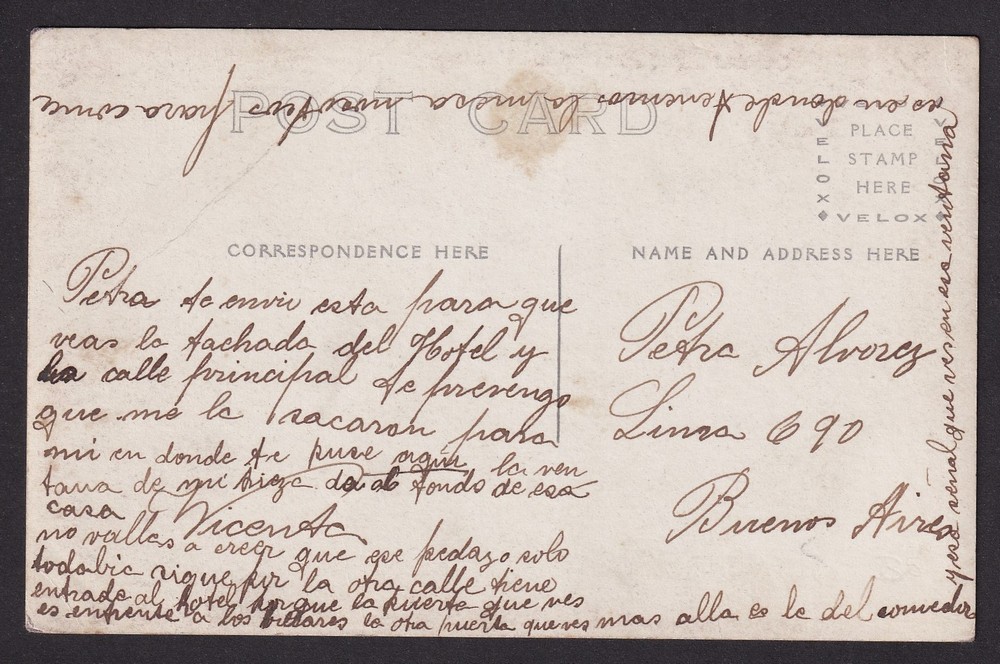 POST CARD
PLACE
STAMP
HERE
VELOX
VELOX
VELOX
CORRESPONDENCE HERE
NAME AND ADDRESS HERE
Petra te envio esta para que
veas la fachada del Hotel y
la calle principal te prevengo
que me la sacaron para
mi en donde te puse aqui la ven
tana de mi pieza da al fondo de esa
casa
Vicente
no vallas a creer que ese pedazo solo
todabia sigue por la otra calle tiene
entrada al hotel porque la puerta que ves
es enfrente a los billares la otra puerta que ves mas alla es la del comedor
y esa señal que ves en esa ventana
es en donde tenemos la mesa nosotros para comer
Petra Alvorez
Lima 690
Buenos Aires